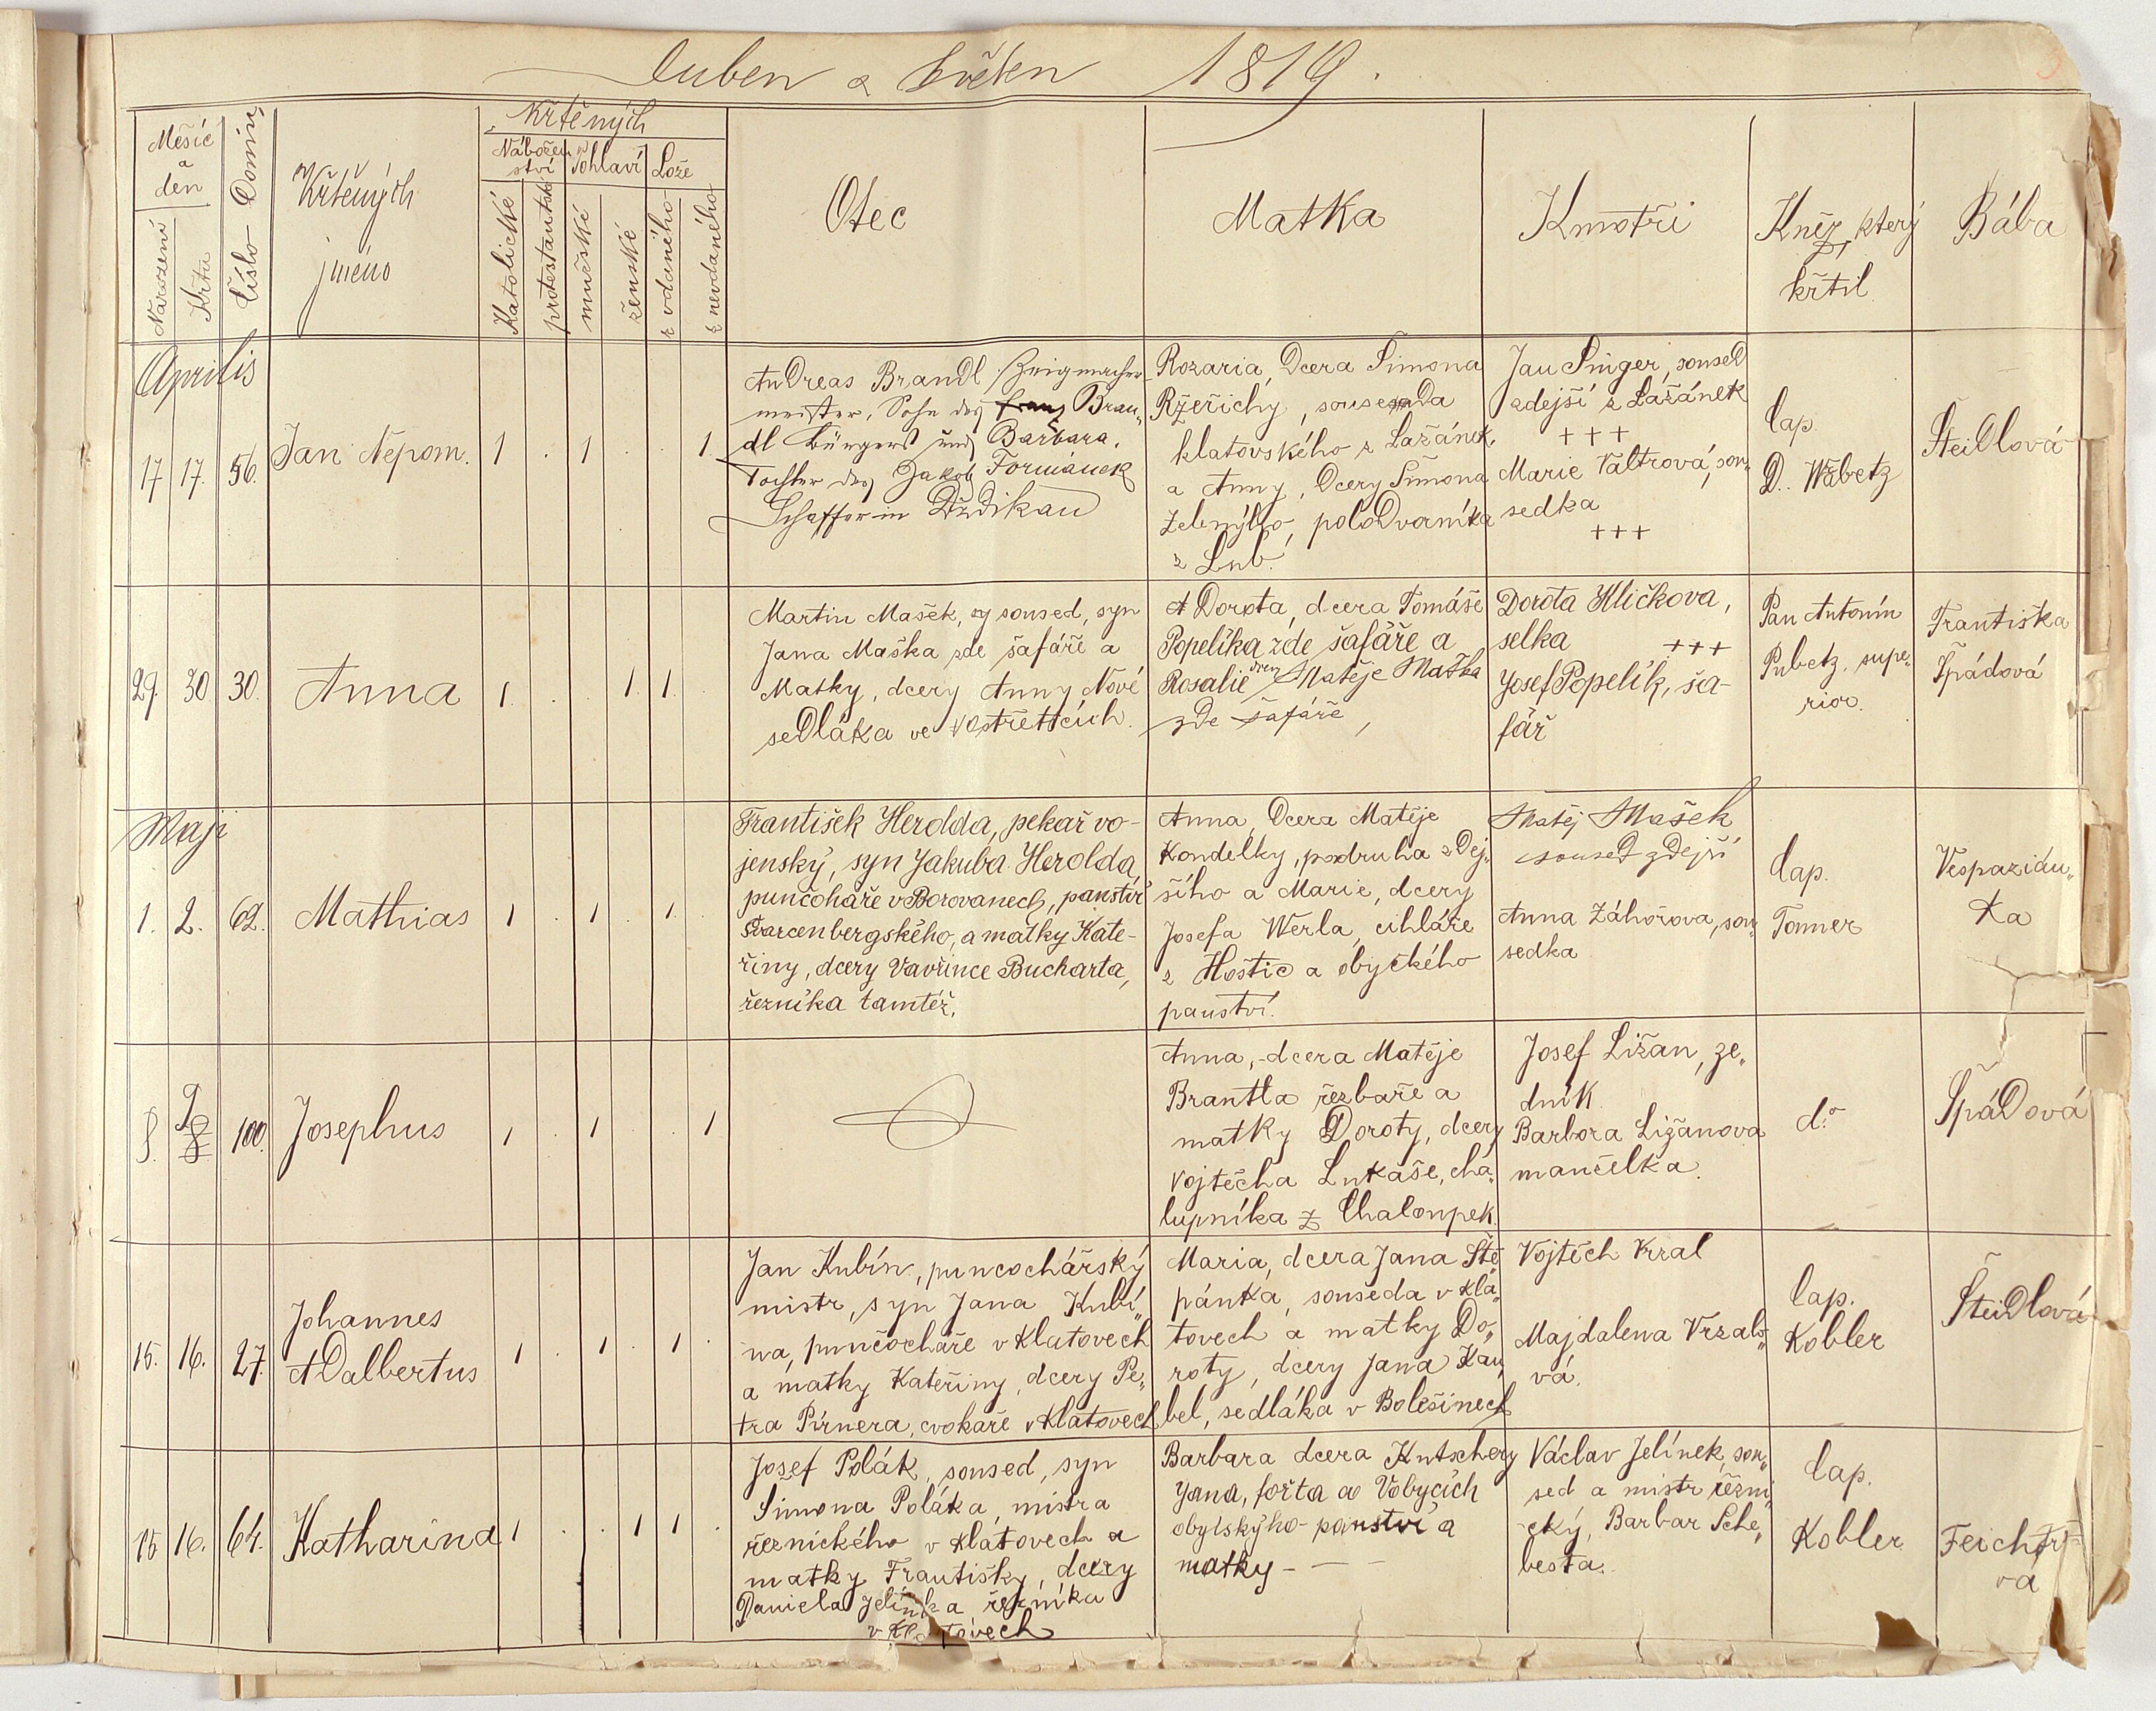 Duben a Květen 1819.
Měsíc a den
Narození
Křtu
Číslo Domu
Křtěných jméno
Křtěných
Nábožen ství
Pohlaví
Lože
Katolické
protestantské
mužské
ženské
z vdaného
z nevdaného
Otec
Matka
Kmotři
Kněz, který
křtil
Bába
Aprilis
17 17. 56. Jan Nepom. 1 . 1 . . 1
Andreas Brandl Zeigmacher
meister, Sohn des Franz Bran„
dl Bürgers und Barbara,
Tochter des Jakob Formánek
Schaffer in Dědikau
Rozaria, Dcera Šimona
Rzeřichy, souseda
klatovského z Lažánek,
a Anny, Dcery Šimona
Zelenýho, poloDvorníka
z Lub.
Jan Singer, souseD
zdejší z Lažánek
+++
Marie Valtrová, sou„
sedka
+++
Cap.
D. Wrbetz
ŠteiDlová
29. 30. 30. Anna 1 . . 1. 1.
Martin Mašek, sy soused, syn
Jana Maška zde šafáře a
Matky, dcery Anny Nové
seDláka ve Vostřetticích.
Dorota, dcera Tomáše
Popelíka zde šafáře a
Rosalie dcery Matěje Maška
zde šafáře,
Dorota Hličkova,
selka +++
Josef Popelík, ša-
fář
Pan Antonín
Pubetz, supe„
rior.
Františka
Špádová
Maji
1. 2. 62. Mathias 1 . 1 . 1.
František Herolda, pekař vo-
jenský, syn Jakuba Herolda,
punčoháře v Borovanech, panství
Švarcenbergského, a matky Kate-
řiny, dcery Vavřince Bucharta,
řezníka tamtéž.
Anna, Dcera Matěje
Kondelky, podruha zDej„
šího a Marie, dcery
Josefa Werla, cihláře
z Hoštic a obyckého
panství.
Matěj Mašek
souseD zDejší
Anna Záhořova, sou„
sedka
Cap.
Tonner
Vespazián„
ka
8. 9 8 100. Josephus 1 . 1 1
Anna, dcera Matěje
Brantla řezbaře a
matky Doroty, dcery
Vojtěcha Lukáše, cha„
lupníka z Chaloupek.
Josef Ližan, ze„
dník
Barbora Ližanova
mančelka.
do
ŠpáDová
15. 16. 27. Johannes
ADalbertus 1 . 1 . 1 .
Jan Kubín, puncochářský
mistr, syn Jana Kubí„
na, punčocháře v Klatovech
a matky Kateřiny, dcery Pe„
tra Pirnera, cvokaře v Klatovech
Maria, dcera Jana Ště„
pánka, souseda v Kla„
tovech a matky Do„
roty, dcery Jana Kau„
bel, sedláka v Bolešinech
Vojtěch Vrzal
Majdalena Vrzalo„
vá.
Cap.
Kobler
ŠteiDlová
15 16. 64. Katharina 1 . . 1 1 .
Josef Polák, soused, syn
Šimona Poláka, mistra
řeznického v Klatovech a
matky Františky, dcery
Daniela Jelínka řezníka
v Klatovech
Barbara dcera Kutschery
Jana, fořta ao Vobycích
obyčskýho panství a
matky - — -
Václav Jelínek, sou„
sed a mistr řezni„
cký, Barbar Sche„
besta.
Cap.
Kobler
Feichtro
va